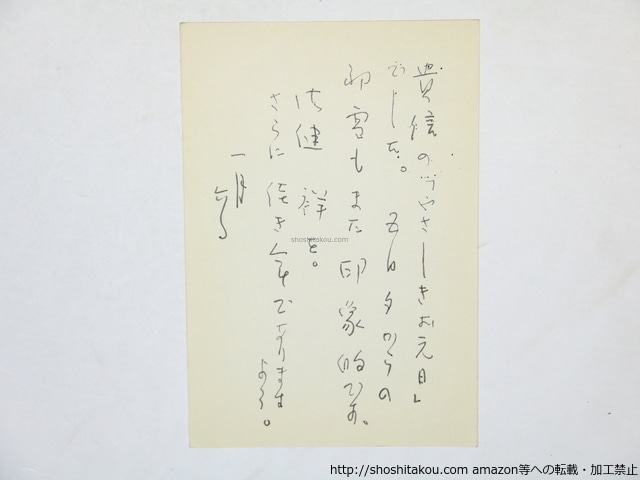 貴信の「やさしきお元日」
でした。 五日夕からの
初雪もまた印象的です。
御健祥を。
さらに佳き年でありますよう。
一月六日
shoshitakou.com
http://shoshitakou.com amazon等への転載・加工禁止